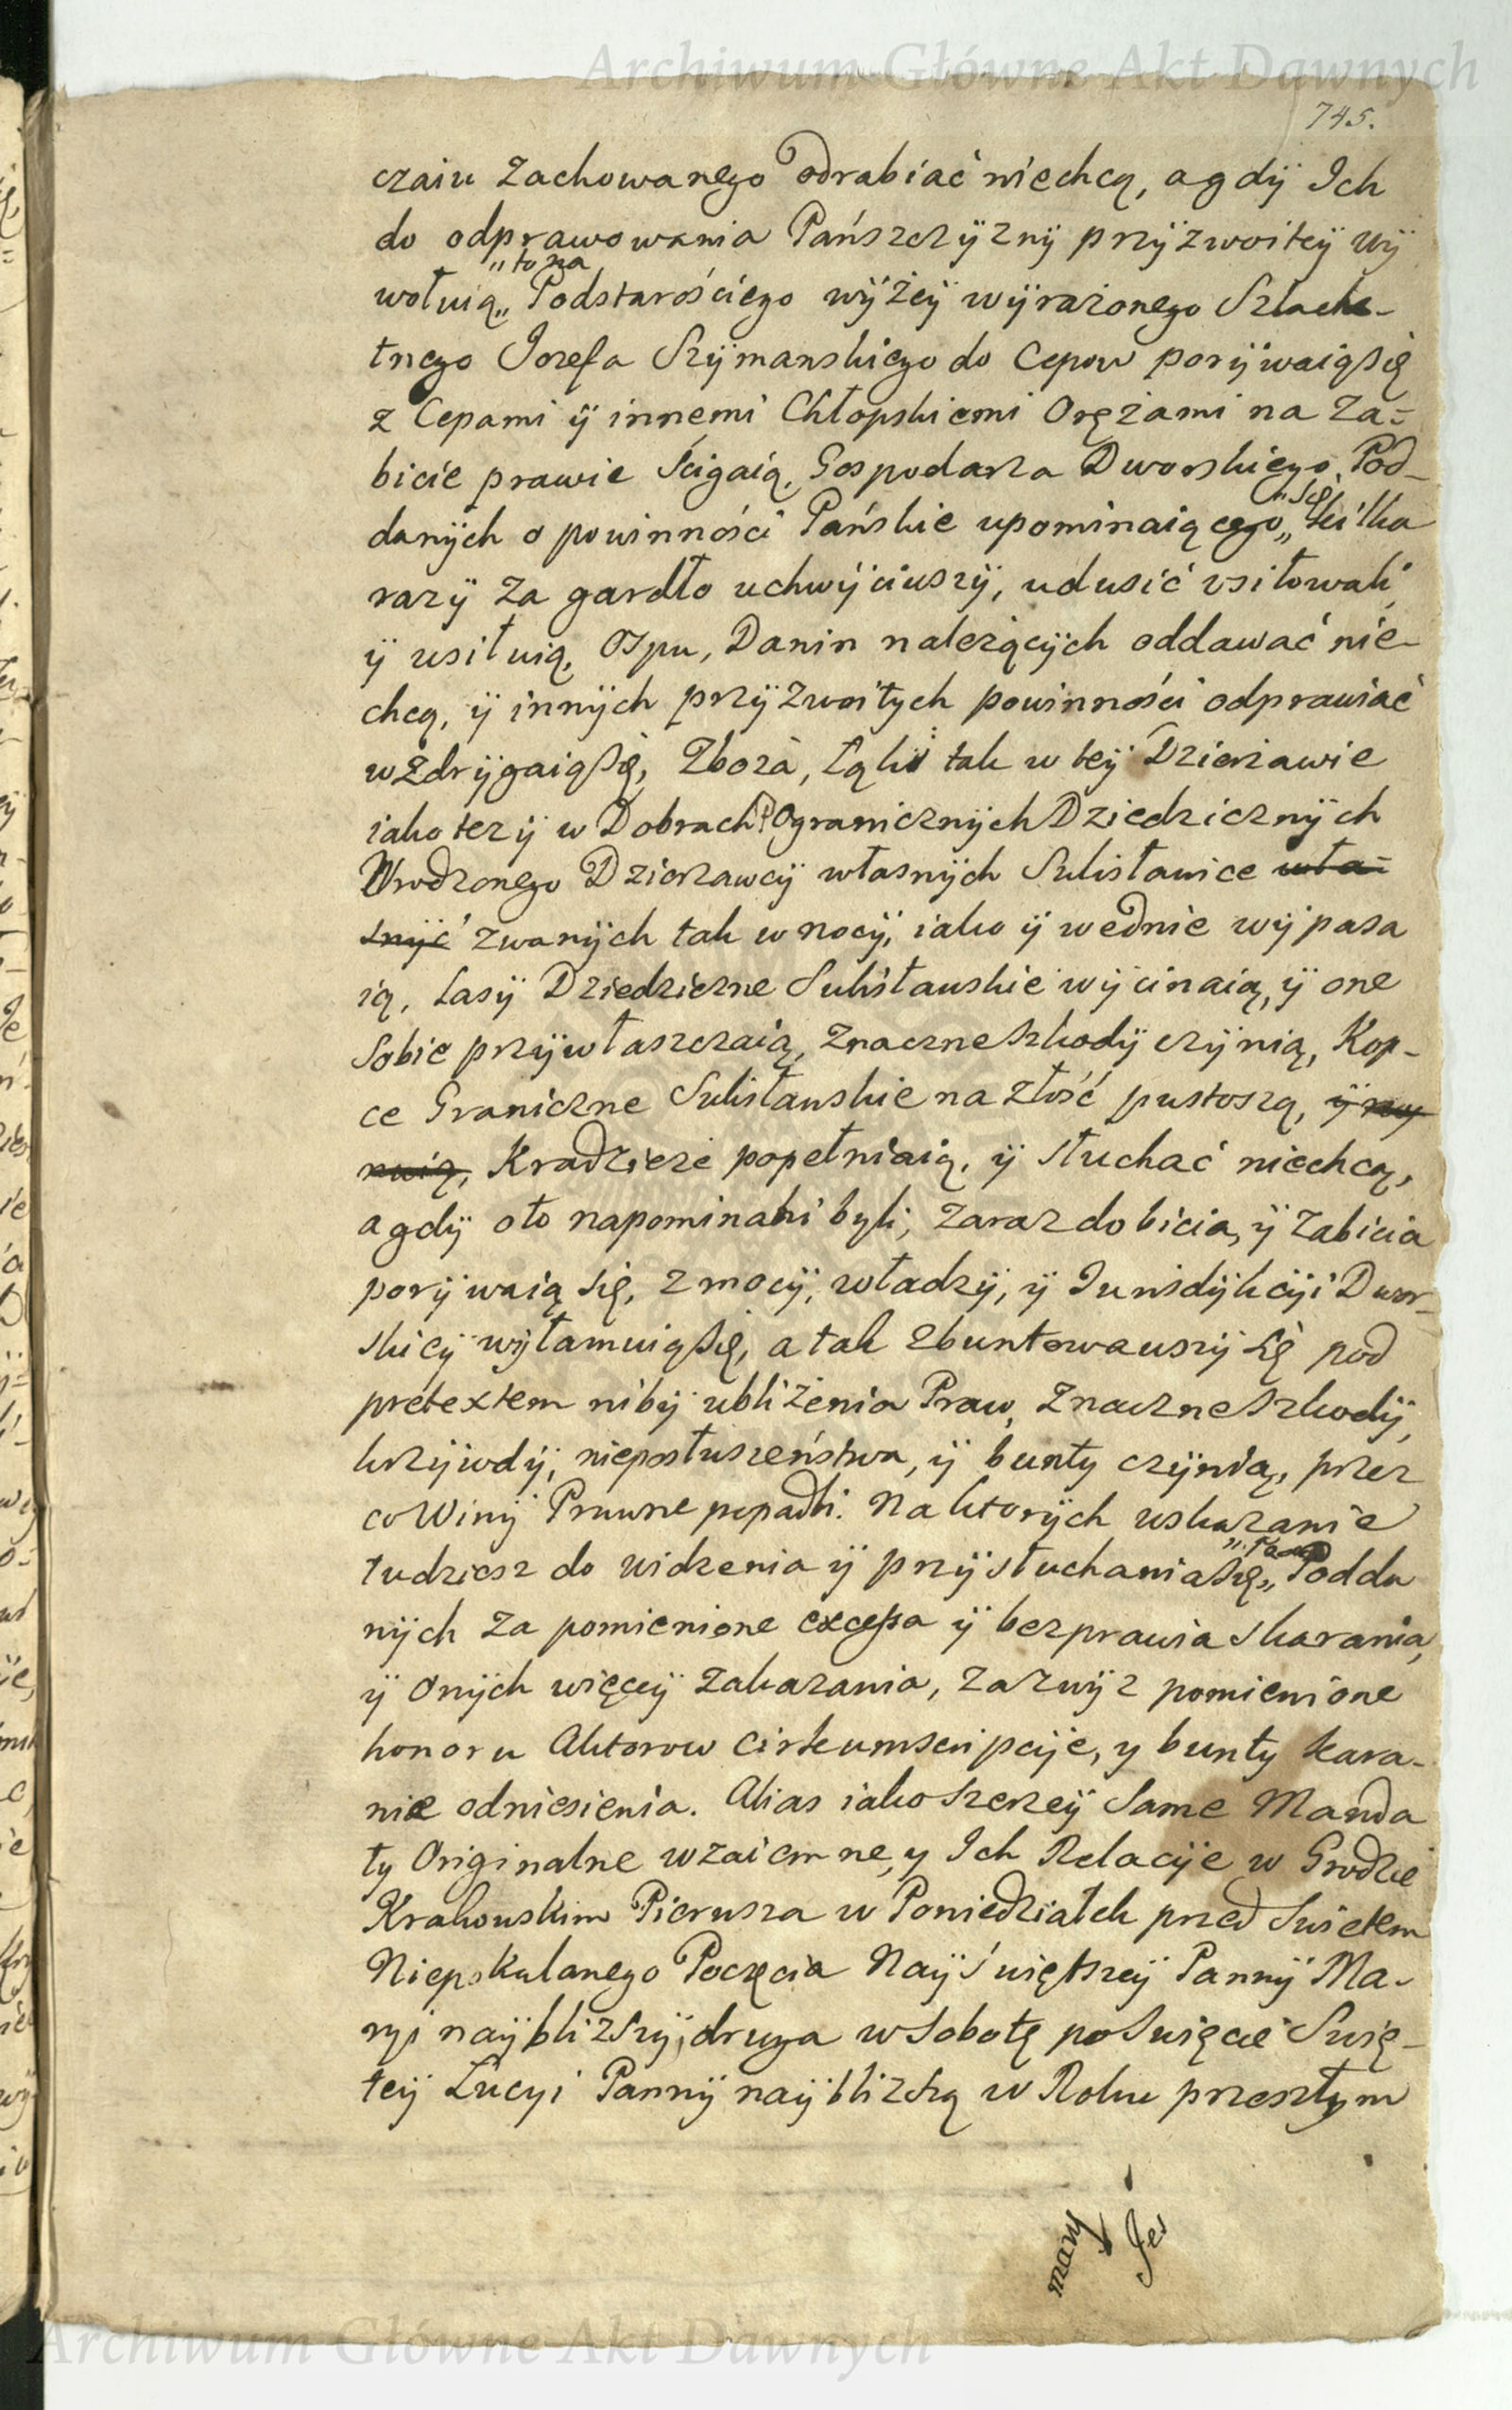 Archiwum Główne Akt Dawnych
745.
czaiu zachowanego odrabiać niechcą, a gdÿ Ich
do odprawowania Pańszczÿznÿ przÿzwoiteÿ wÿ
"to na
wołuią„ Podstarościego wÿżeÿ wÿrażonego Szlache-
tnego Jozefa Szÿmanskiego do Cepow porÿwaią się
z Cepami ÿ innemi Chłopskiemi Orężami na za=
bicie prawie ścigaią, Gospodarza Dworskiego, Pod-
"się
danÿch o powinności Pańskie upominaiącego„ kilka
razÿ za gardło uchwÿciwszÿ, udusić vsiłowali,
ÿ usiłuią, Ospu, Danin należącÿch oddawać nie-
chcą, ÿ innÿch przÿzwoitych powinności odprawiać
wzdrÿgaią się, Zboża, Łąki tak w teÿ Dzierżawie
iako też ÿ w Dobrach Pogranicznÿch Dziedzicznÿch
Urodzonego Dzierżawcÿ własnÿch Sulisławice wła=
snÿć zwanÿch tak w nocÿ, iako ÿ wednie wÿpasa
ią, Lasÿ Dziedziczne Sulisławskie wÿcinaią, ÿ one
sobie przÿwłaszczaią, znaczne szkodÿ czÿnią, Kop-
ce Graniczne Sulisławskie na złość pustoszą, ÿ ruÿ
nuią, Kradzieże popełniaią, ÿ słuchać niechcą,
a gdÿ oto napominani byli, zaraz do bicia, ÿ zabicia
porÿwaią się, z mocÿ, władzÿ, ÿ Jurisdÿkcÿi Dwor-
skieÿ wÿłamuią się, a tak zbuntowawszÿ się pod
pretextem nibÿ ubliżenia Praw, znaczne szkodÿ,
krzÿwdÿ, nieposłuszeństwa, ÿ bunty czÿnią, przez
co Winÿ Prawne popadli. Na ktorÿch wskazanie
tudziesz do widzenia ÿ przÿsłuchania się„ Podda
nÿch za pomienione excessa ÿ bezprawia skarania,
ÿ onÿch więceÿ zakazania, za zwÿz pomienione
honoru Aktorow cirkumscripcÿe, y bunty kara-
nie odniesienia. Alias iako szerzeÿ same Manda
ty Originalne wzaiemne, y Ich Relacÿe w Grodzie
Krakowskim Pierwsza w Poniedziałek przed Swietem
Niepokalanego Poczęcia Naÿświętszeÿ Pannÿ Ma-
ryi naÿbliższÿ, druga w Sobotę po Swięcie Swię-
teÿ Lucyi Pannÿ naÿbliższą w Roku przeszłym
Archiwum Główne Akt Dawnych